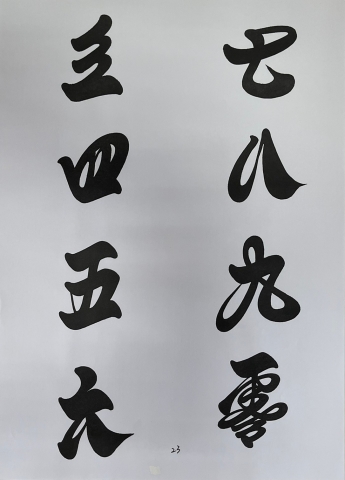 三
四
五
六
七
八
九
零
23